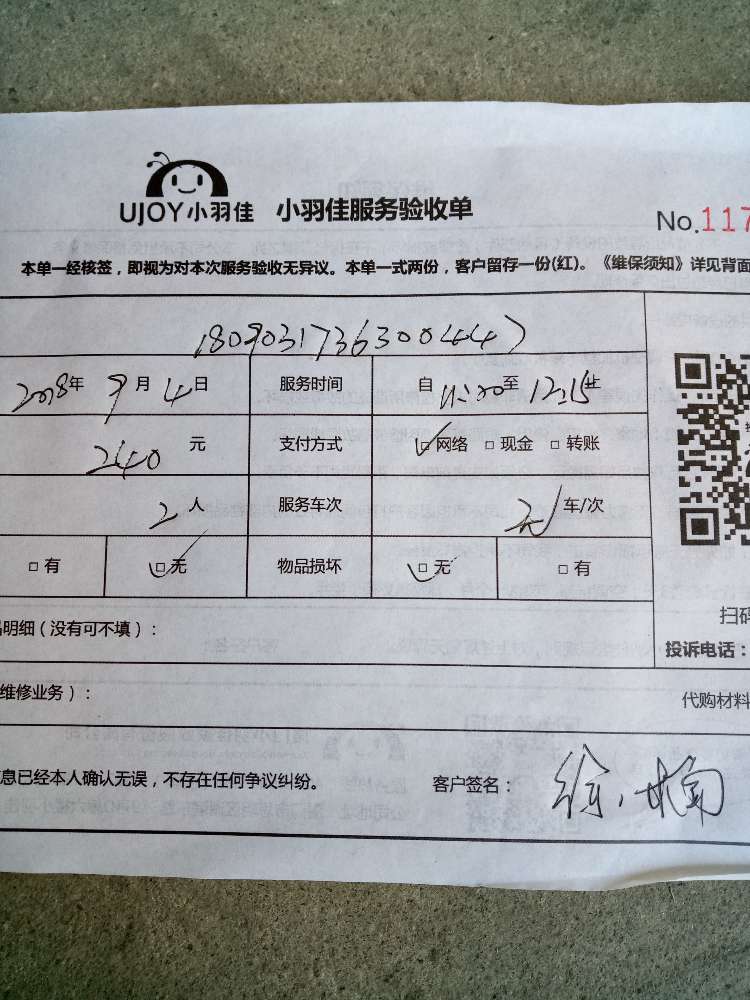 UJOY小羽佳 小羽佳服务验收单
No.117
本单一经核签，即视为对本次服务验收无异议。本单一式两份，客户留存一份(红)。《维保须知》详见背面
180903173630044７
2018年 9月 4日 服务时间 自 11:20至 12:15止
240 元 支付方式 □网络 □现金 □转账
2 人 服务车次 车/次
□有 □无 物品损坏 □无 □有
扫码
明细（没有可不填）：
投诉电话：
维修业务）：
代购材料
息已经本人确认无误，不存在任何争议纠纷。 客户签名：